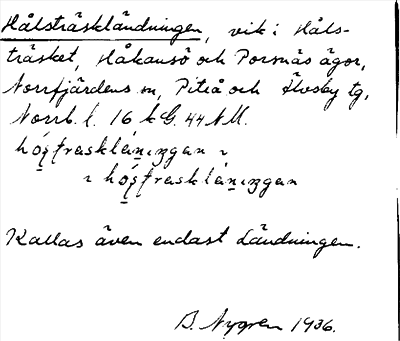 Hålsträskländningen, vik i Håls-
träsket, Håkansö och Porsnäs ägor,
Norrfjärdens sn, Piteå och Älvsby tg,
Norrb. l. 16 k G. 44 NM.
hó̱ʂtrasklániŋgan ɿ
ɿ hó̱ʂtrasklániŋgan
Kallas även endast Ländningen.
B. Nygren 1936.